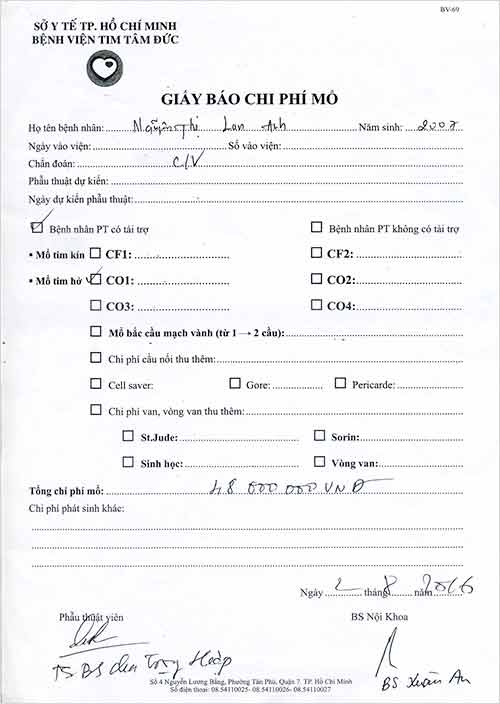 BV-69
SỞ Y TẾ TP. HỒ CHÍ MINH
BỆNH VIỆN TIM TÂM ĐỨC
GIẤY BÁO CHI PHÍ MỔ
Họ tên bệnh nhân: Nguyễn Thị Lan Anh Năm sinh: 2007
Ngày vào viện: Số vào viện:
Chẩn đoán: CIV
Phẫu thuật dự kiến:
Ngày dự kiến phẫu thuật:
Bệnh nhân PT có tài trợ Bệnh nhân PT không có tài trợ
• Mổ tim kín CF1: CF2:
• Mổ tim hở CO1: CO2:
CO3: CO4:
Mổ bắc cầu mạch vành (từ 1 → 2 cầu):
Chi phí cầu nối thu thêm:
Cell saver: Gore: Pericarde:
Chi phí van, vòng van thu thêm:
St.Jude: Sorin:
Sinh học: Vòng van:
Tổng chi phí mổ: 48 000 000 VNĐ
Chi phí phát sinh khác:
Ngày 2 tháng 8 năm 2016
Phẫu thuật viên BS Nội Khoa
TS BS Trọng Hiệp
BS Xuân An
Số 4 Nguyễn Lương Bằng, Phường Tân Phú, Quận 7. TP. Hồ Chí Minh
Số điện thoại: 08.54110025- 08.54110026- 08.54110027